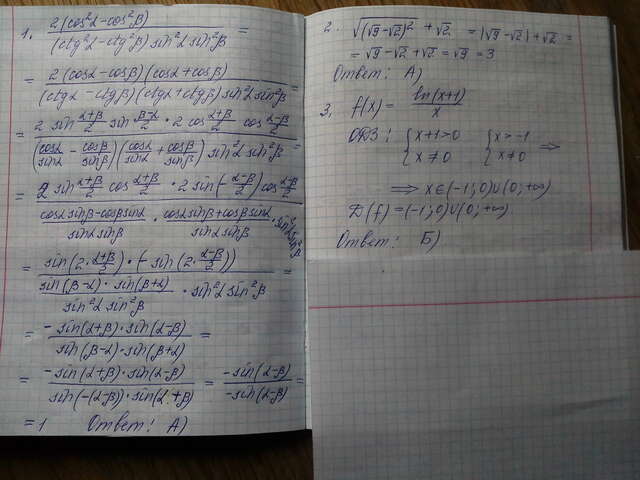 1. 2(cos²α-cos²β) / (ctg²α-ctg²β)sin²α sin²β =
= 2(cosα-cosβ)(cosα+cosβ) / (ctgα-ctgβ)(ctgα+ctgβ)sin²α sin²β =
= 2 sin (α+β)/2 sin (β-α)/2 · 2 cos (α+β)/2 cos (α-β)/2 / (cosα/sinα - cosβ/sinβ)(cosα/sinα + cosβ/sinβ) sin²α sin²β =
= 2 sin (α+β)/2 cos (α+β)/2 · 2 sin(-(α-β)/2) cos (α-β)/2 / (cosα sinβ-cosβ sinα)/(sinα sinβ) · (cosα sinβ+cosβ sinα)/(sinα sinβ) · sin²α sin²β
= sin(2·(α+β)/2)·(-sin(2·(α-β)/2)) / (sin(β-α)·sin(β+α))/(sin²α sin²β) · sin²α sin²β =
= -sin(α+β)·sin(α-β) / sin(β-α)·sin(β+α) =
= -sin(α+β)·sin(α-β) / sin(-(α-β))·sin(α+β) = -sin(α-β) / -sin(α-β) =
= 1 Ответ: А)
2. √(√9-√2)² + √2 = |√9-√2|+√2 =
= √9-√2+√2 = √9 = 3
Ответ: А)
3. f(x) = ln(x+1) / x
ОДЗ: { x+1>0 { x>-1
x≠0 x≠0 ⟹
⟹ x∈(-1;0)∪(0;+∞)
D(f)=(-1;0)∪(0;+∞)
Ответ: Б)